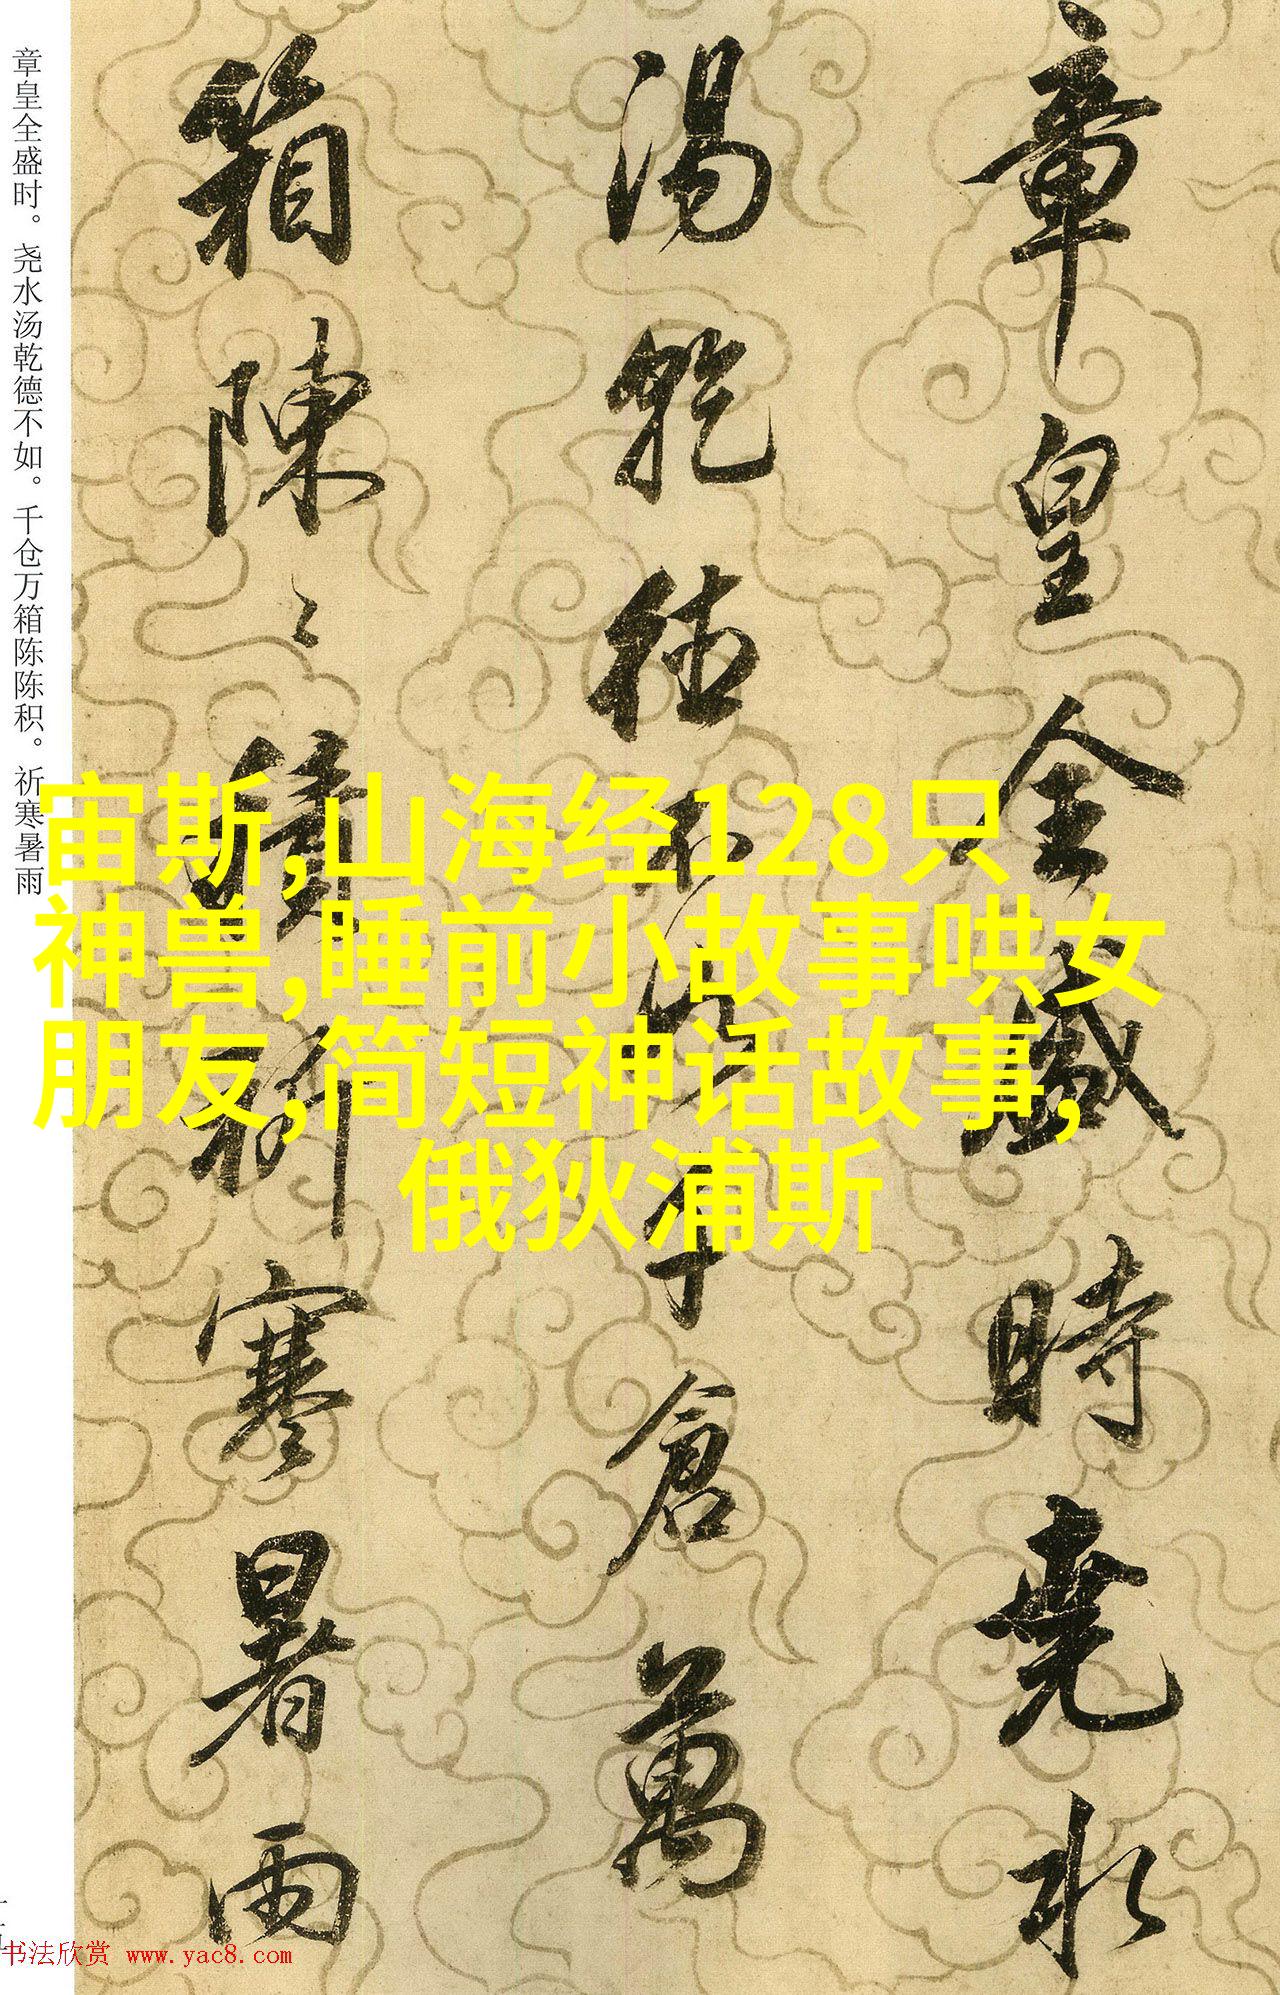 章皇全盛时。尧水汤乾德不如。千仓万箱陈陈积。祈寒暑雨
章皇全盛時堯水
湯乾德不如千倉萬
箱陳〻積祈寒暑雨
宙斯,山海经128只
神兽,睡前小故事哄女
朋友,简短神话故事,
俄狄浦斯
书法欣赏 www.yac8.com